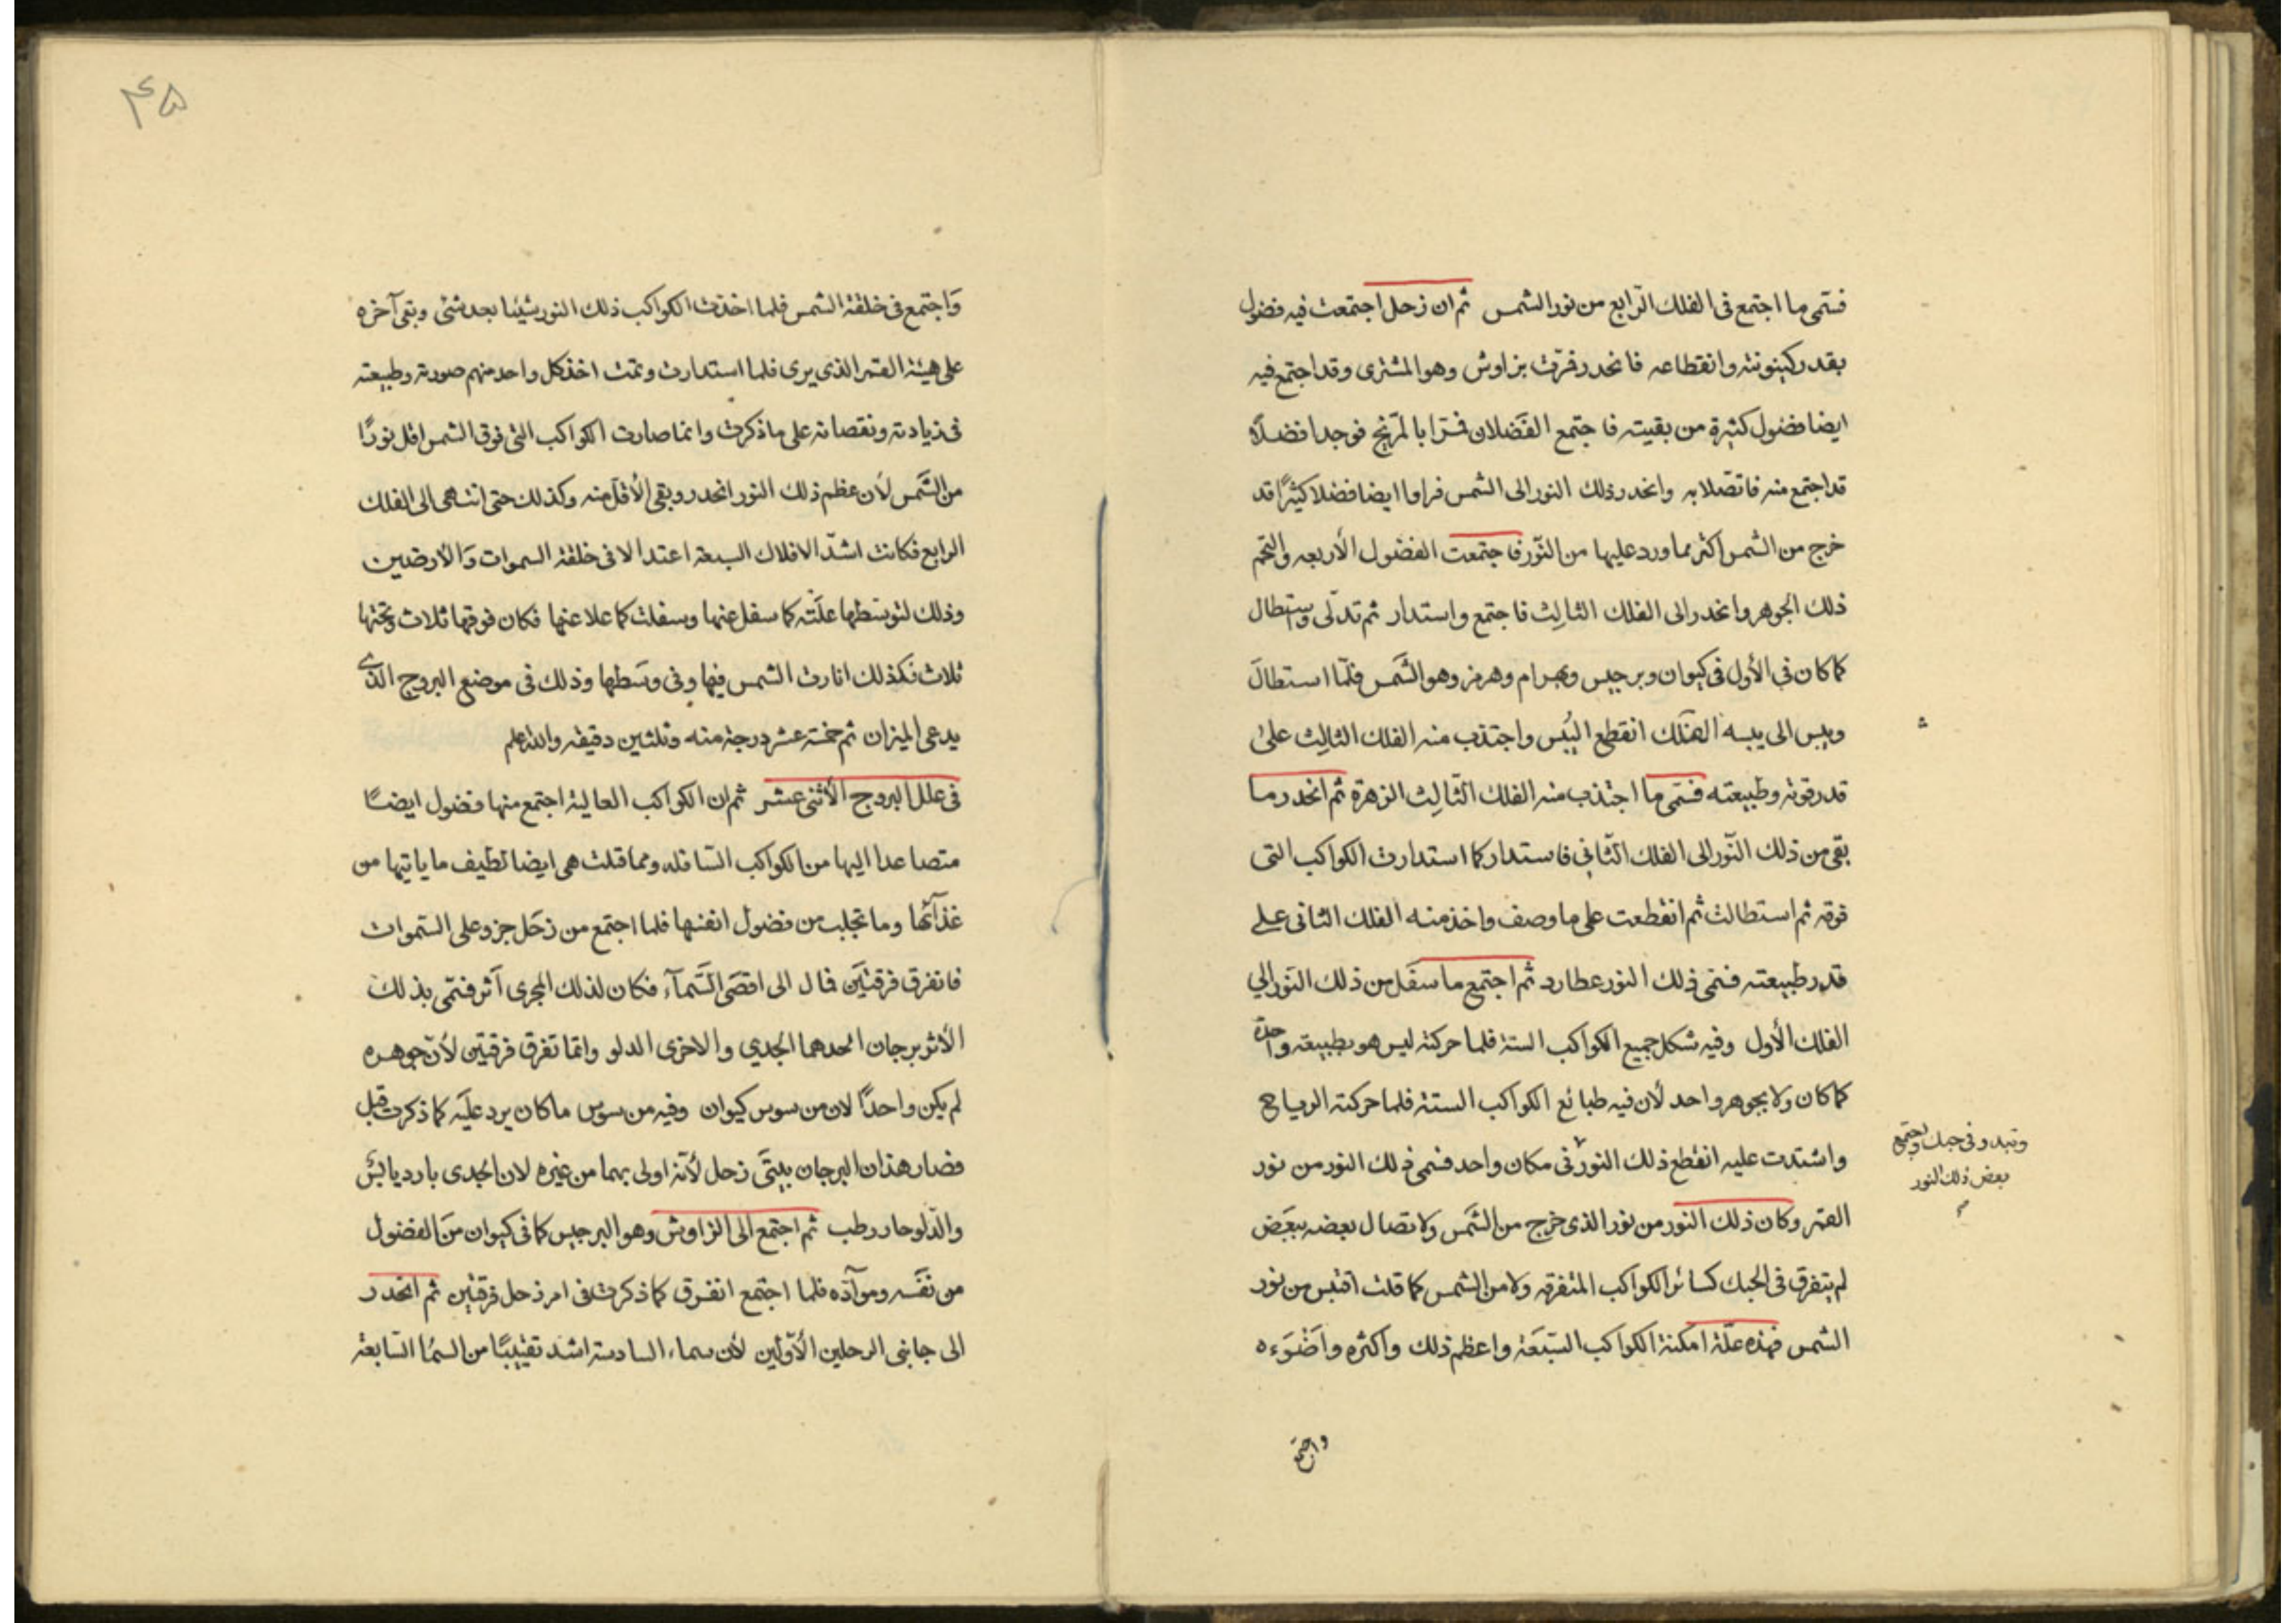 فسمى ما اجتمع فى الفلك الرّابع من نور الشمس ثم ان زحل اجتمعت فيه فضول
بقدر كينونته وانقطاعه فانحدر فمرّت بزاوش وهو المشترى وقد اجتمع فيه
ايضا فضول كثيرة من بقيته فاجتمع الفَضلان فمرّا بالمرّيخ فوجدا فضلاً
قد اجتمع منه فاتصّلا به وانحدر ذلك النور الى الشمس فراوا ايضا فضلا كثيرًا قد
خرج من الشمس اكثر مما ورد عليها من النّور فاجتمعت الفضول الأربعه والتحم
ذلك الجوهر وانحدر الى الفلك الثالِث فاجتمع واستدار ثم تدلّى واستطال
كما كان في الأول فى كيوان وبرجيس وبهرام وهرمز وهو الشَمس فلمّا استطالَ
ويبس الى يبسه الفلك انقطع اليُبس واجتذب منه الفلك الثالِث علىٰ
قدر قوته وطبيعته فسَمى ما اجتذب منه الفلك الثّالِث الزهرة ثم انحدر ما
بقى من ذلك النّور الى الفلك الثّاني فاستدار كما استدارت الكواكب التى
فوقه ثم استطالت ثم انقطعت على ما وصف واخذ منه الفلك الثانى على
قدر طبيعته فسمى ذلك النور عطارد ثم اجتمع ما سفَل من ذلك النَور الي
الفلك الأول وفيه شكل جميع الكواكب الستة فلما حركته ليس هو بطبيعته واحدة
كما كان ولا بجوهر واحد لأن فيه طبائع الكواكب الستة فلما حركته الرياح
واشتدت عليه انقطع ذلك النور فى مكان واحد فسمى ذلك النور من نور
القمر وكان ذلك النور من نور الذى خرج من الشَمس ولاتصال بعضه ببَعض
لم يتفرق فى الحبك كسائر الكواكب المتفرقه ولا من الشمس كما قلت اقتبس من نور
الشمس فهذه علّة امكنة الكواكب السَبعَة واعظم ذلك واكثره واَضوَءه
فى حبك ويجتمع
بعض ذلك النور
واجتمع
۴۵
وَاجتمع فى خلقة الشمس فلما اخذت الكواكب ذلك النور شيئا بعد شئى وبقى آخره
على هيئة القمر الذى يرى فلما استدارت وتمت اخذ كل واحد منهم صورته وطبيعته
فى زيادته ونقصانه على ما ذكرت وانما صارت الكواكب التى فوق الشمس اقل نورًا
من الشَمس لأن عظم ذلك النور انحدر وبقى الأقل منه وكذلك حتى انتهى الى الفلك
الرابع فكانت اشدّ الافلاك السبعة اعتدالا فى خلقة السموات وَالأرضين
وذلك لتوسّطها علَته كما سفل عنها وسفلت كما علا عنها فكان فوقها ثلاث وتحتها
ثلاث فكذلك انارت الشمس فيها وفى وسَطها وذلك فى موضع البروج الذى
يدعى الميزان ثم خمسة عشر درجة منه وثلثين دقيقه والله اعلم
فى علل البروج الأثنى عشر ثم ان الكواكب العالية اجتمع منها فضول ايضًا
متصاعدا اليها من الكواكب السّافله ومما قلت هى ايضا تطيف ما ياتيها من
غذآئها وما تجلب من فضول انفسها فلما اجتمع من زحَل جزو على السّموات
فانفرق فرقتَين قال الى اقصَى السَّمآء فكان لذلك المجرى اَثر فسَمّى بذلك
الأثر برجان احدهما الجدي والاخرى الدلو وانمّا تفرق فرقتين لأنّ جوهره
لم يكن واحدًا لان من سوس كيوان وفيه من سوس ما كان يرد علَيه كما ذكرت قبل
فصار هذان البرجان بيتَى زحل لأنّه اولى بهما من غيره لان الجدى بارد يابس
والدّلو حار رطب ثم اجتمع الى الزاوش وهو البرجيس كما فى كيوان منَ الفضول
من نفَسه وموآدّه فلما اجتمع انفرق كما ذكرت فى امر زحل فرقتين ثم انحدر
الى جانبى الرحلين الأوّلين لأن سماء السادسة اشد تقبيبًا من السمُا السّابعة